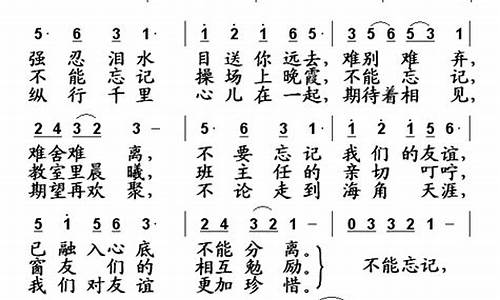 5· 6 3 1· | 1· 2 1 6 5 | 3 5 6 5 3 1 |
强忍泪水 目送你远去,难别难弃,
不能忘记 操场上晚霞,不能忘记,
纵行千里 心儿在一起,期待着相见,
2 4 3 2 3 – | 5· 6 3 1· | 1· 2 1 5 6· |
难舍难离, 不要忘记 我们的友谊,
教室里晨曦, 班主任的 亲切叮咛,
期望再欢聚, 不论走到 海角天涯,
5 1 5 6 3· | 2 4 3 2 1 – | 0 3 3 2 1 – |
已融入心底 不能分离。
窗友们的 相互勉励。 不能忘记,
我们对友谊 更加珍惜。